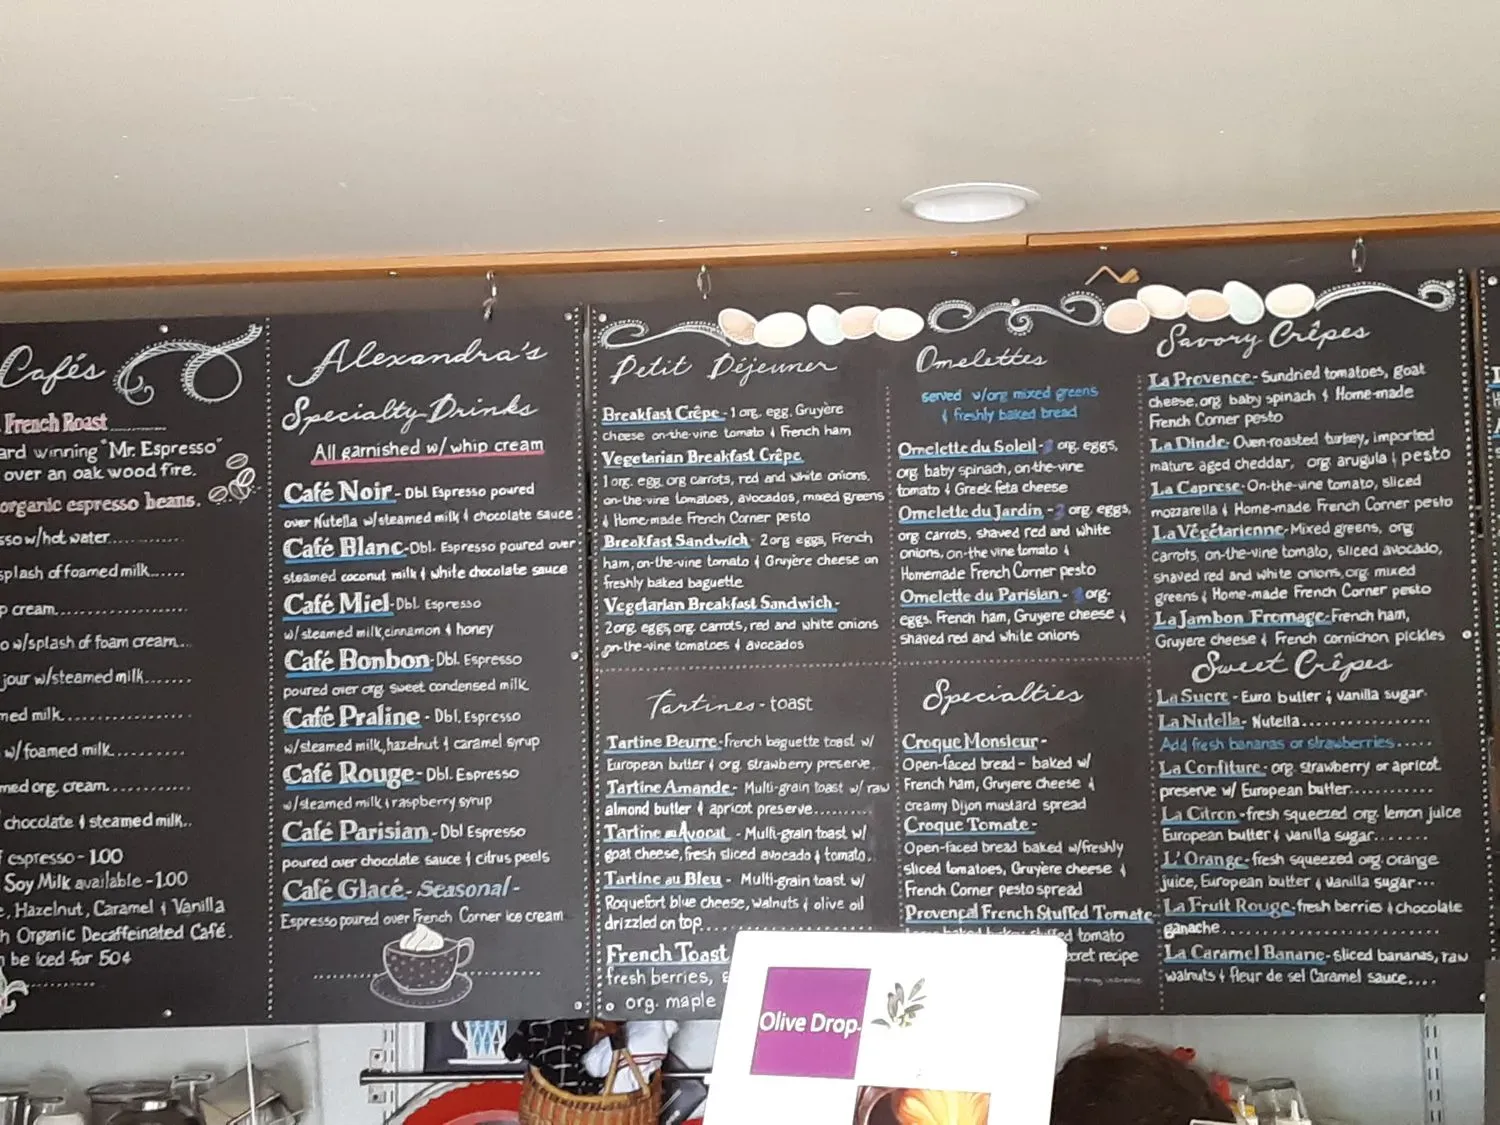 Cafés
French Roast
ard winning "Mr. Espresso"
over an oak wood fire.
organic espresso beans.
sso w/hot water
splash of foamed milk
p cream
o w/splash of foam cream
jour w/steamed milk
med milk
w/foamed milk
med org. cream
chocolate & steamed milk
espresso - 1.00
Soy Milk available - 1.00
, Hazelnut, Caramel & Vanilla
h Organic Decaffeinated Café.
n be iced for 50¢
Alexandra's
Specialty Drinks
All garnished w/ whip cream
Café Noir - Dbl. Espresso poured
over Nutella w/steamed milk & chocolate sauce
Café Blanc - Dbl. Espresso poured over
steamed coconut milk & white chocolate sauce
Café Miel - Dbl. Espresso
w/ steamed milk, cinnamon & honey
Café Bonbon - Dbl. Espresso
poured over org. sweet condensed milk
Café Praline - Dbl. Espresso
w/steamed milk, hazelnut & caramel syrup
Café Rouge - Dbl. Espresso
w/steamed milk & raspberry syrup
Café Parisian - Dbl Espresso
poured over chocolate sauce & citrus peels
Café Glacé - Seasonal -
Espresso poured over French Corner ice cream
Petit Déjeuner
Breakfast Crêpe - 1 org. egg, Gruyère
cheese on-the-vine tomato & French ham
Vegetarian Breakfast Crêpe
1 org. egg, org carrots, red and white onions,
on-the-vine tomatoes, avocados, mixed greens
& Home-made French Corner pesto
Breakfast Sandwich - 2 org. eggs, French
ham, on-the-vine tomato & Gruyère cheese on
freshly baked baguette
Vegetarian Breakfast Sandwich -
2 org. eggs, org. carrots, red and white onions
on-the-vine tomatoes & avocados
Tartines - toast
Tartine Beurre - French baguette toast w/
European butter & org. strawberry preserve
Tartine Amande - Multi-grain toast w/ raw
almond butter & apricot preserve
Tartine au Avocat - Multi-grain toast w/
goat cheese, fresh sliced avocado & tomato.
Tartine au Bleu - Multi-grain toast w/
Roquefort blue cheese, walnuts & olive oil
drizzled on top
French Toast
fresh berries,
org. maple
Omelettes
served w/org mixed greens
& freshly baked bread
Omelette du Soleil - 3 org. eggs,
org baby spinach, on-the-vine
tomato & Greek feta cheese
Omelette du Jardin - 3 org. eggs,
org carrots, shaved red and white
onions, on-the vine tomato &
Homemade French Corner pesto
Omelette du Parisian - 3 org.
eggs, French ham, Gruyere cheese &
shaved red and white onions
Specialties
Croque Monsieur -
Open-faced bread - baked w/
French ham, Gruyere cheese &
creamy Dijon mustard spread
Croque Tomate -
Open-faced bread baked w/freshly
sliced tomatoes, Gruyère cheese &
French Corner pesto spread
Provençal French Stuffed Tomate -
tomato
secret recipe
Savory Crêpes
La Provence - Sundried tomatoes, goat
cheese, org. baby spinach & Home-made
French Corner pesto
La Dinde - Oven-roasted turkey, imported
mature aged cheddar, org arugula & pesto
La Caprese - On-the-vine tomato, sliced
mozzarella & Home-made French Corner pesto
La Végétarienne - Mixed greens, org
carrots, on-the-vine tomato, sliced avocado,
shaved red and white onions, org. mixed
greens & Home-made French Corner pesto
La Jambon Fromage - French ham,
Gruyere cheese & French cornichon pickles
Sweet Crêpes
La Sucre - Euro. butter & vanilla sugar
La Nutella - Nutella
Add fresh bananas or strawberries
La Confiture - org. strawberry or apricot
preserve w/ European butter
La Citron - fresh squeezed org. lemon juice
European butter & vanilla sugar
L'Orange - fresh squeezed org. orange
juice, European butter & vanilla sugar
La Fruit Rouge - fresh berries & chocolate
ganache
La Caramel Banane - sliced bananas, raw
walnuts & fleur de sel Caramel sauce
Olive Drop